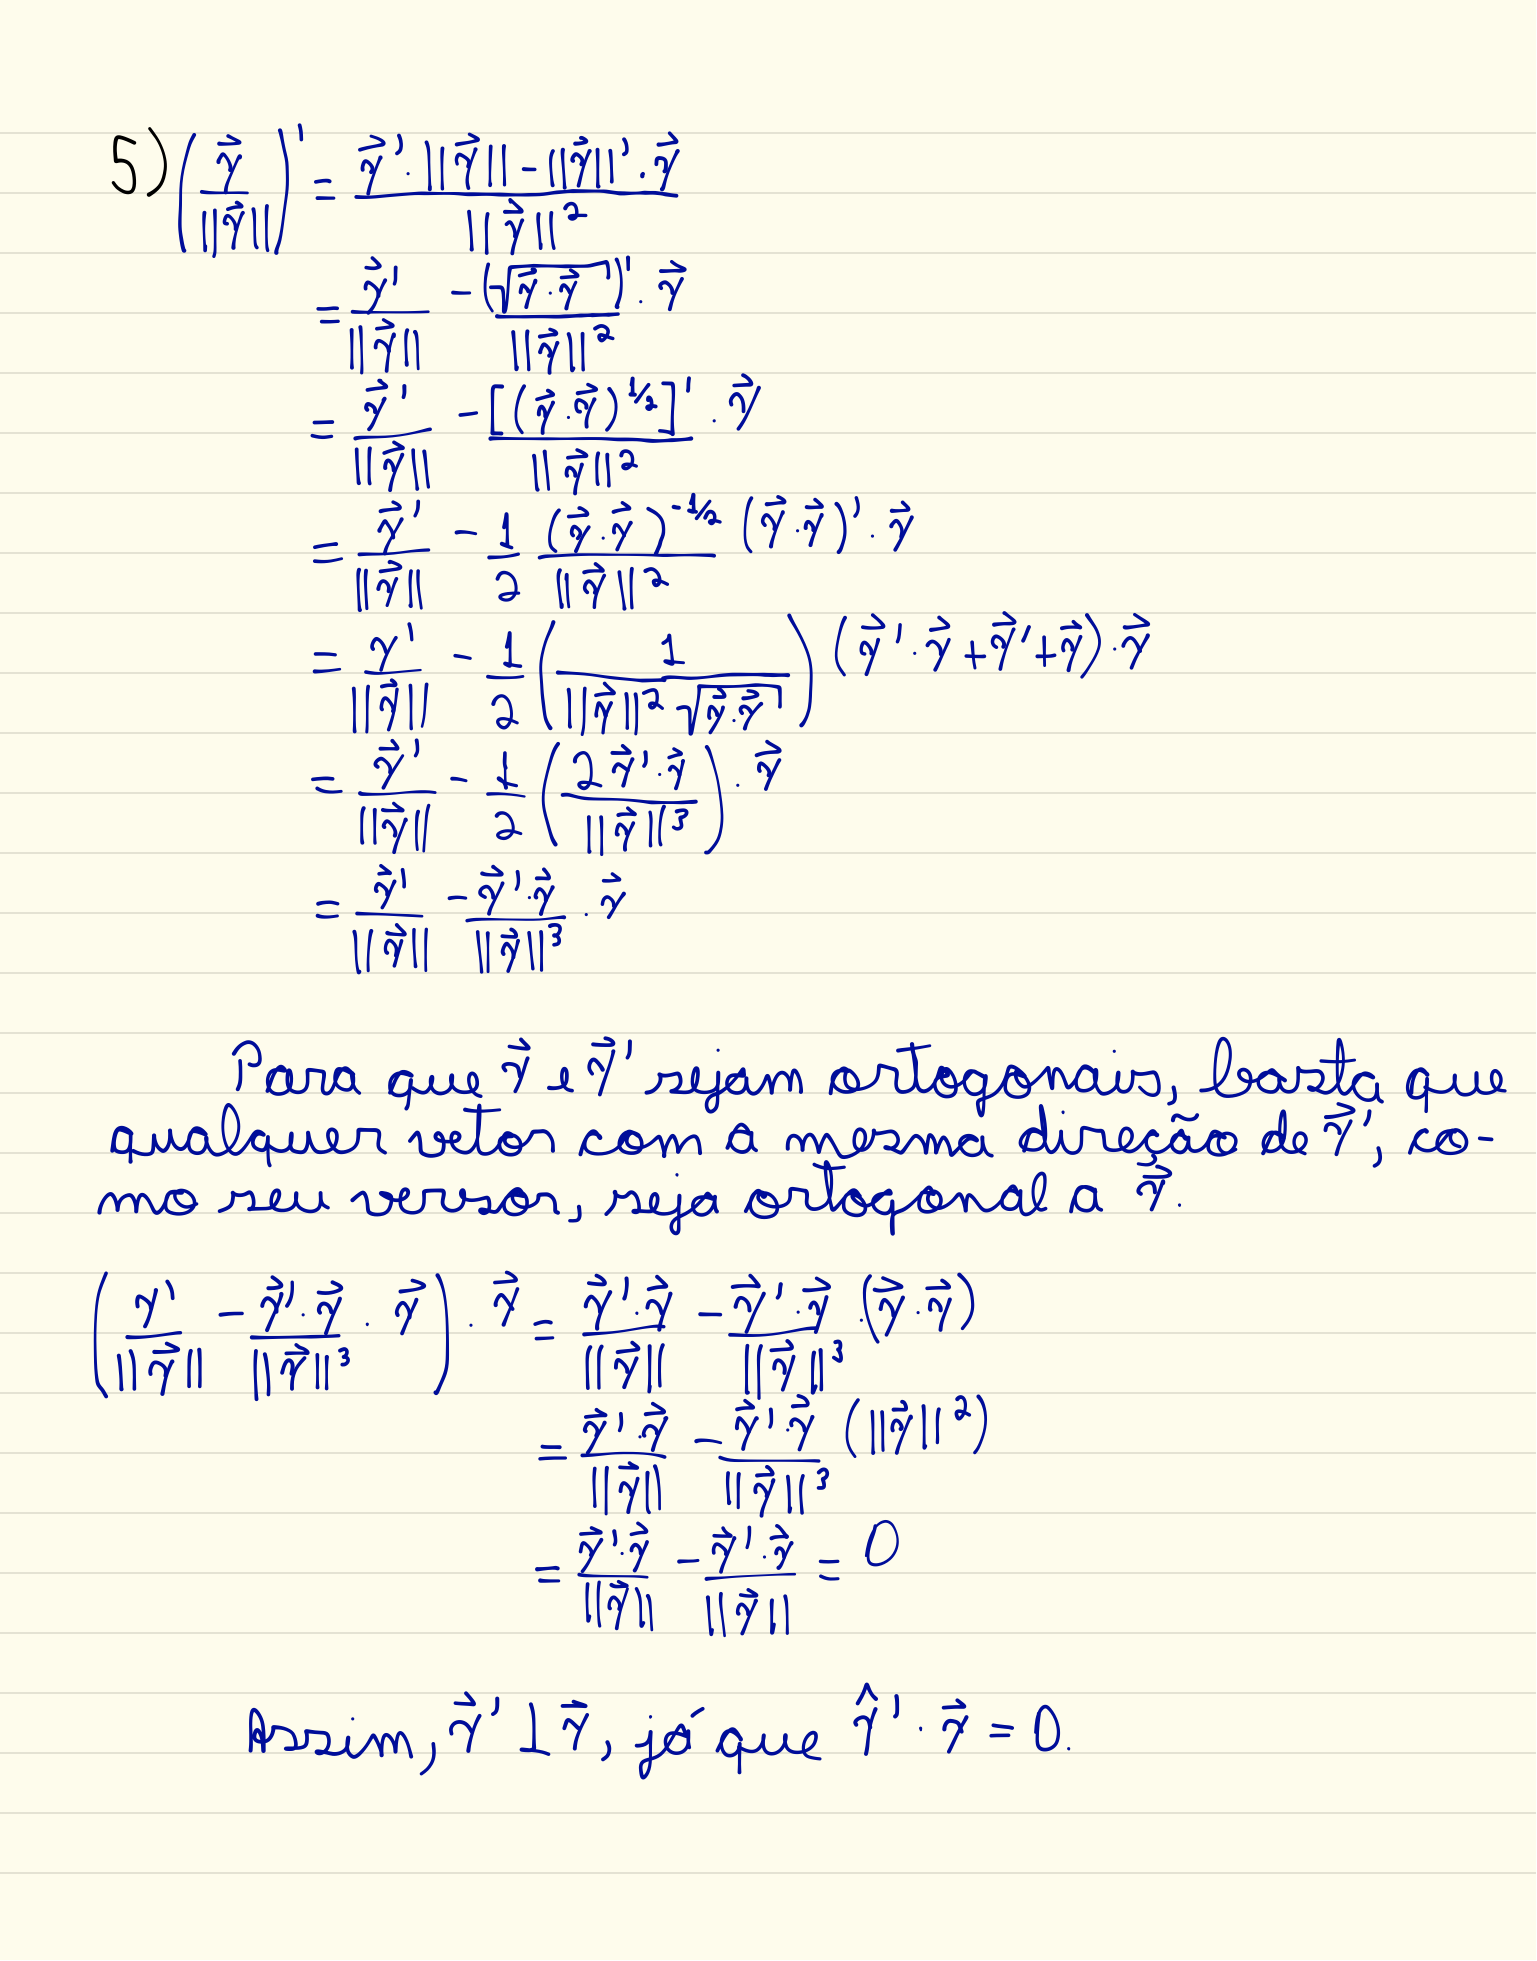 5) (γ⃗ / ||γ⃗||)' = (γ⃗' · ||γ⃗|| - ||γ⃗||' · γ⃗) / ||γ⃗||²
= γ⃗' / ||γ⃗|| - (√(γ⃗ · γ⃗))' / ||γ⃗||² · γ⃗
= γ⃗' / ||γ⃗|| - [(γ⃗ · γ⃗)^(1/2)]' / ||γ⃗||² · γ⃗
= γ⃗' / ||γ⃗|| - 1/2 (γ⃗ · γ⃗)^(-1/2) / ||γ⃗||² (γ⃗ · γ⃗)' · γ⃗
= γ' / ||γ⃗|| - 1/2 (1 / (||γ⃗||² √(γ⃗ · γ⃗))) (γ⃗' · γ⃗ + γ⃗' + γ⃗) · γ⃗
= γ⃗' / ||γ⃗|| - 1/2 (2 γ⃗' · γ⃗ / ||γ⃗||³) · γ⃗
= γ⃗' / ||γ⃗|| - γ⃗' · γ⃗ / ||γ⃗||³ · γ⃗
Para que γ⃗ e γ⃗' sejam ortogonais, basta que
qualquer vetor com a mesma direção de γ⃗', co-
mo seu versor, seja ortogonal a γ⃗.
(γ' / ||γ⃗|| - γ⃗' · γ⃗ / ||γ⃗||³ · γ⃗) · γ⃗ = γ⃗' · γ⃗ / ||γ⃗|| - γ⃗' · γ⃗ / ||γ⃗||³ · (γ⃗ · γ⃗)
= γ⃗' · γ⃗ / ||γ⃗|| - γ⃗' · γ⃗ / ||γ⃗||³ (||γ⃗||²)
= γ⃗' · γ⃗ / ||γ⃗|| - γ⃗' · γ⃗ / ||γ⃗|| = 0
Assim, γ⃗' ⊥ γ⃗, já que γ̂' · γ⃗ = 0.